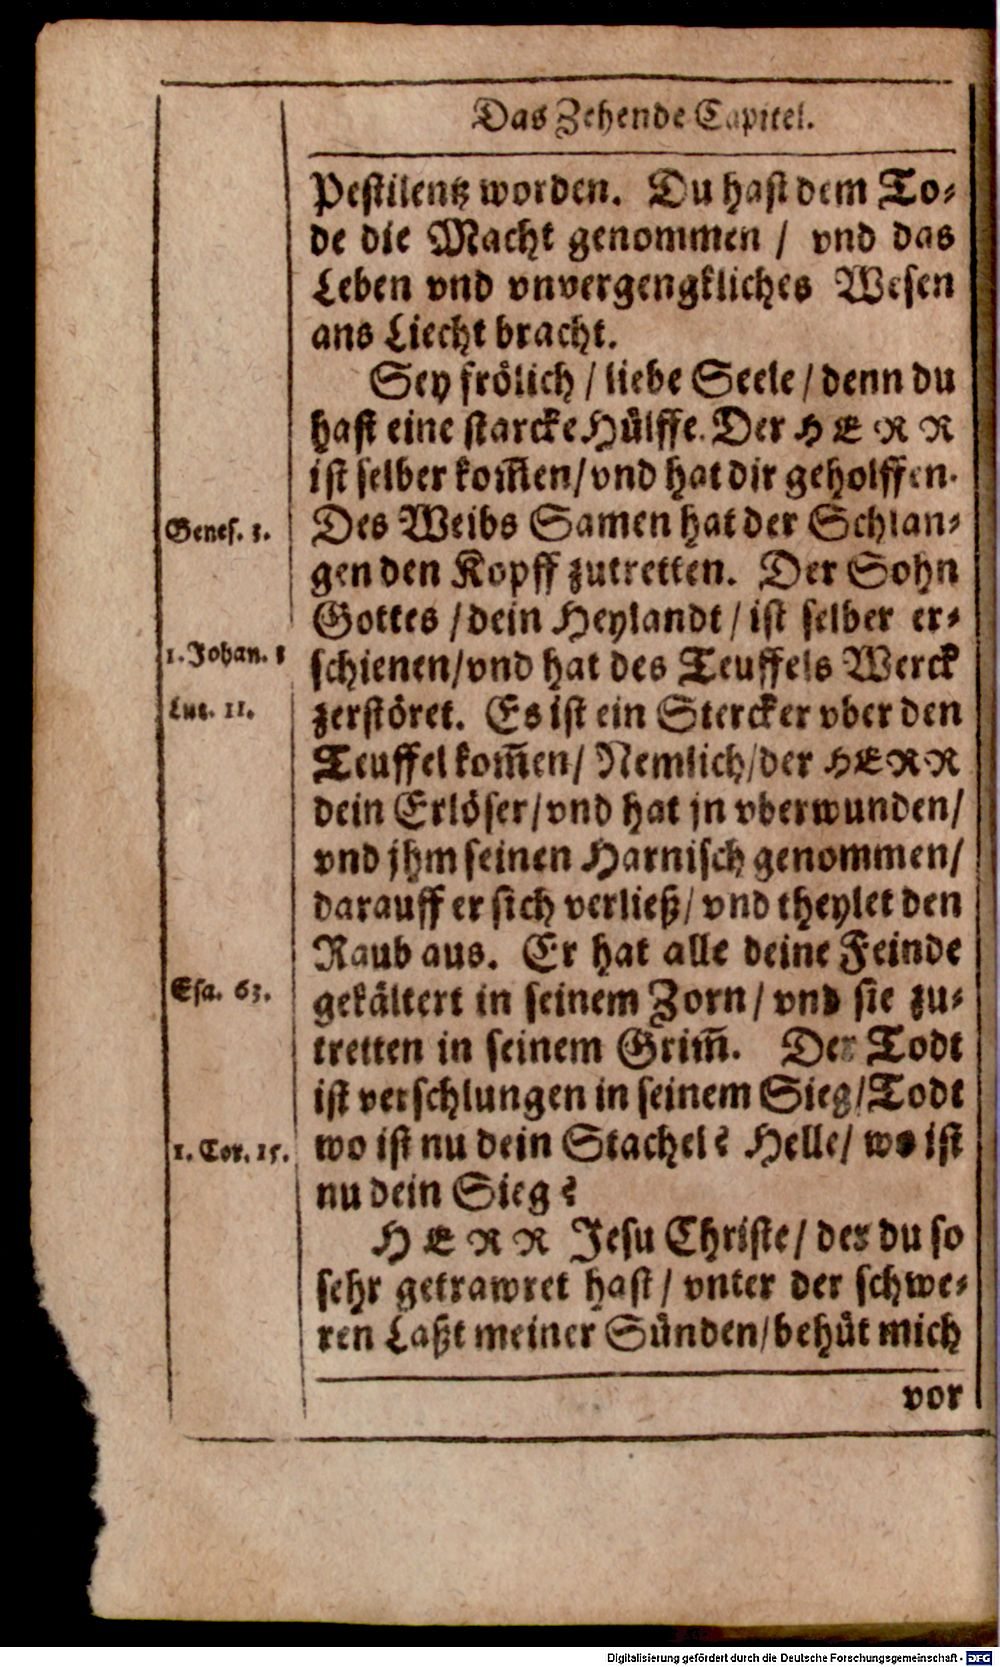 Das Zehende Capitel.
Pestilentz worden. Du hast dem To-
de die Macht genommen / vnd das
Leben vnd vnvergengkliches Wesen
ans Liecht bracht.
Sey frölich / liebe Seele / denn du
hast eine starcke Hülffe. Der HERR
ist selber kom̃en / vnd hat dir geholffen.
Genes. 3.
Des Weibs Samen hat der Schlan-
gen den Kopff zutretten. Der Sohn
Gottes / dein Heylandt / ist selber er-
1. Johan. 3
schienen / vnd hat des Teuffels Werck
Luc. 11.
zerstöret. Es ist ein Stercker vber den
Teuffel kom̃en / Nemlich / der HERR
dein Erlöser / vnd hat jn vberwunden /
vnd jhm seinen Harnisch genommen /
darauff er sich verließ / vnd theylet den
Raub aus. Er hat alle deine Feinde
Esa. 63.
gekältert in seinem Zorn / vnd sie zu-
tretten in seinem Grim̃. Der Todt
ist verschlungen in seinem Sieg / Todt
1. Cor. 15.
wo ist nu dein Stachel? Helle / wo ist
nu dein Sieg?
HERR Jesu Christe / der du so
sehr getrawret hast / vnter der schwe-
ren Laßt meiner Sünden / behüt mich
vor
Digitalisierung gefördert durch die Deutsche Forschungsgemeinschaft - DFG